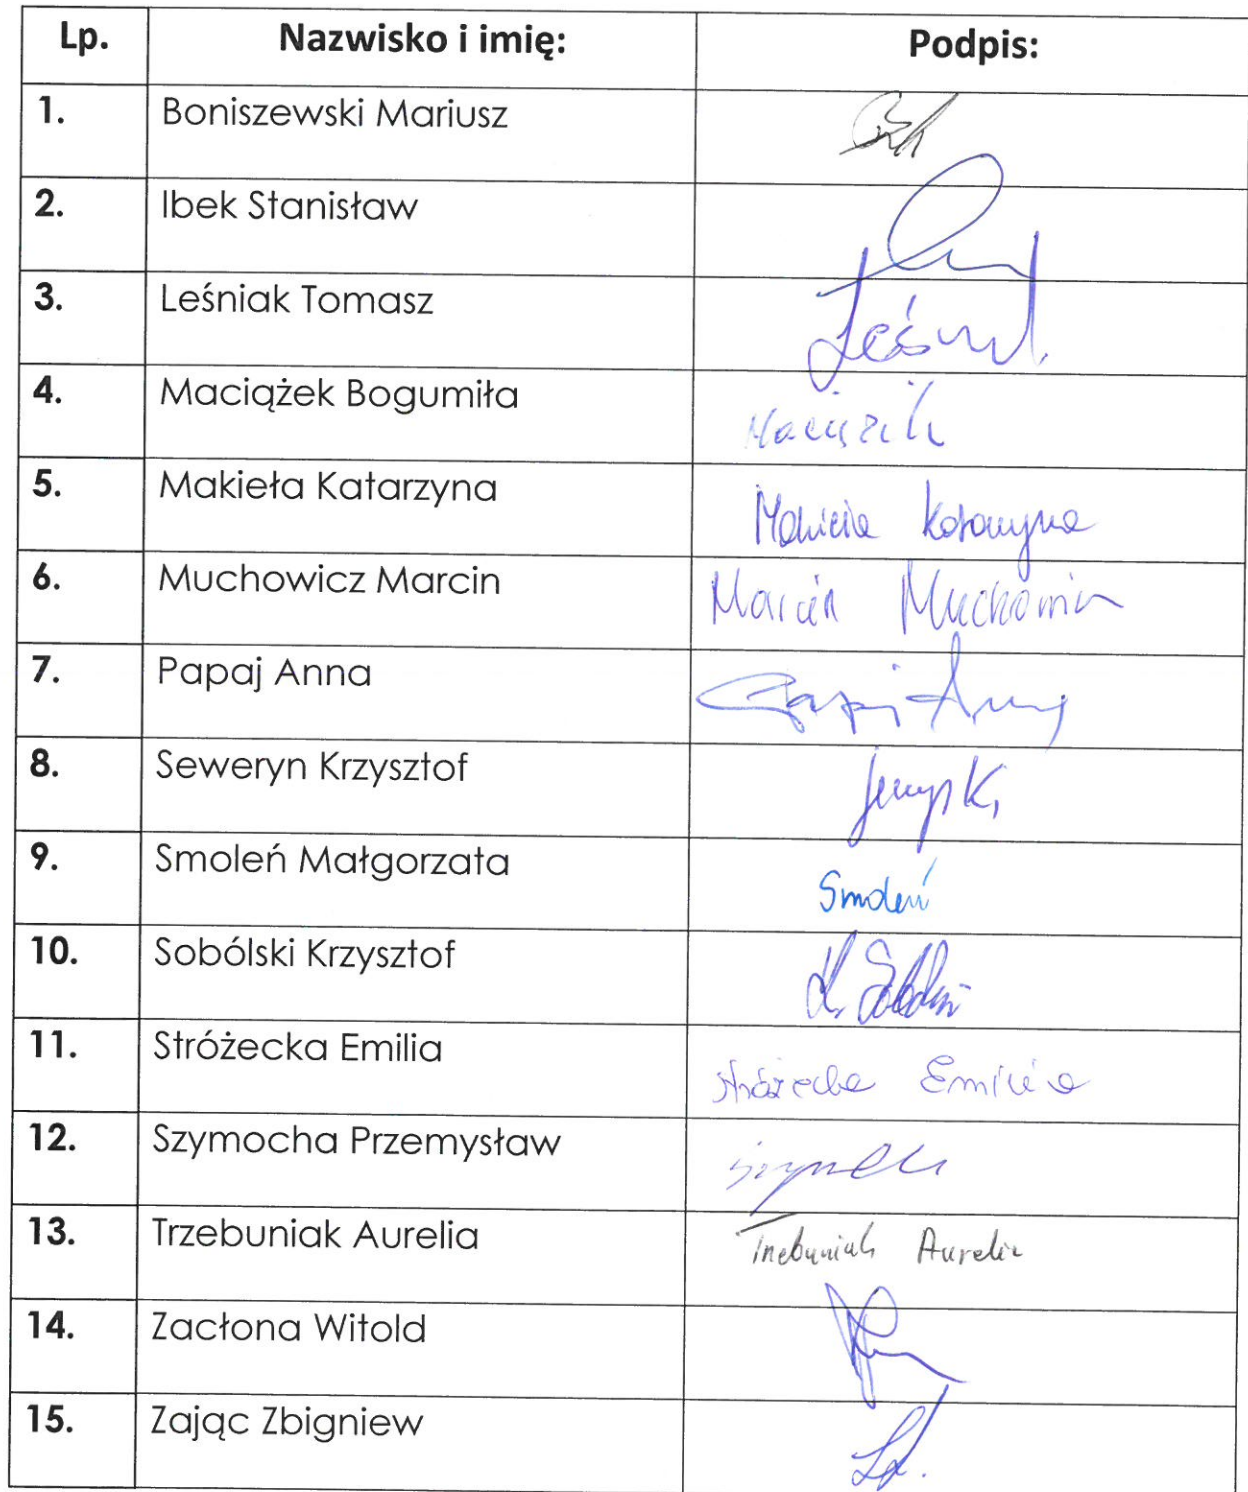 Lp. Nazwisko i imię: Podpis:
1. Boniszewski Mariusz
2. Ibek Stanisław
3. Leśniak Tomasz
4. Maciążek Bogumiła
5. Makieła Katarzyna Makieła Katarzyna
6. Muchowicz Marcin Marcin Muchowicz
7. Papaj Anna Papaj Anna
8. Seweryn Krzysztof
9. Smoleń Małgorzata Smoleń
10. Sobólski Krzysztof
11. Stróżecka Emilia Stróżecka Emilia
12. Szymocha Przemysław
13. Trzebuniak Aurelia Trzebuniak Aurelia
14. Zacłona Witold
15. Zając Zbigniew